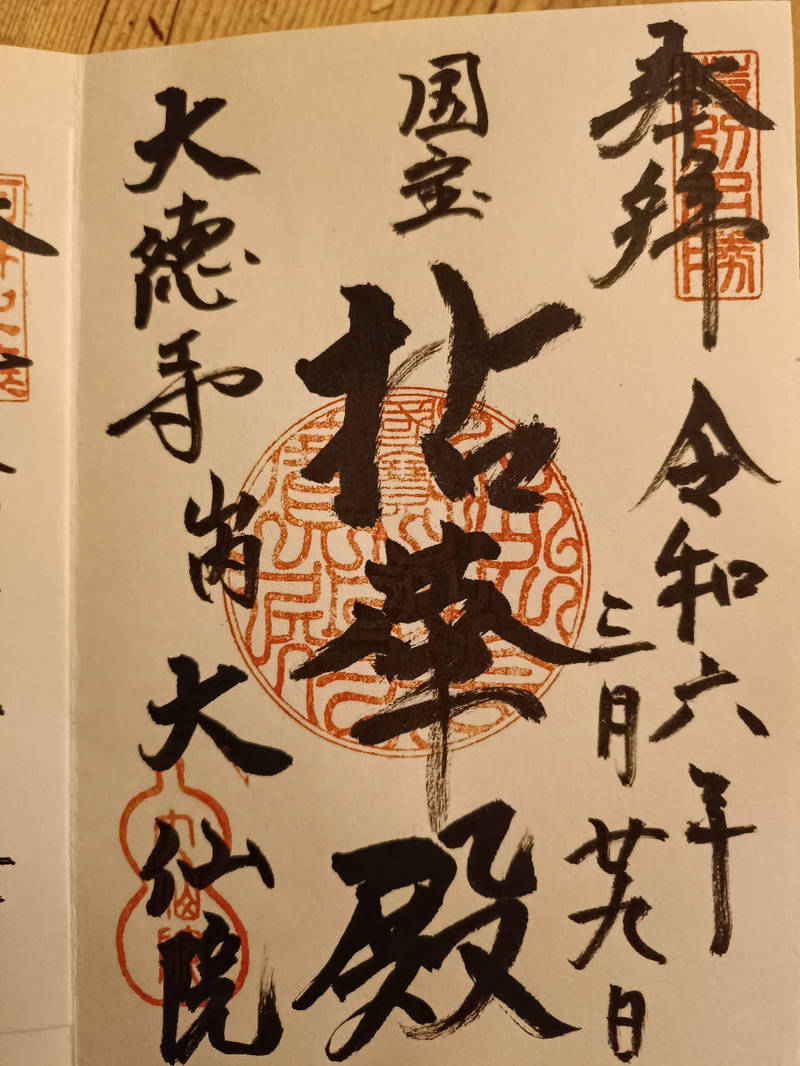 奉拝
特別名勝
令和六年
三月廿九日
国宝
拈華殿
大徳寺山内 大仙院